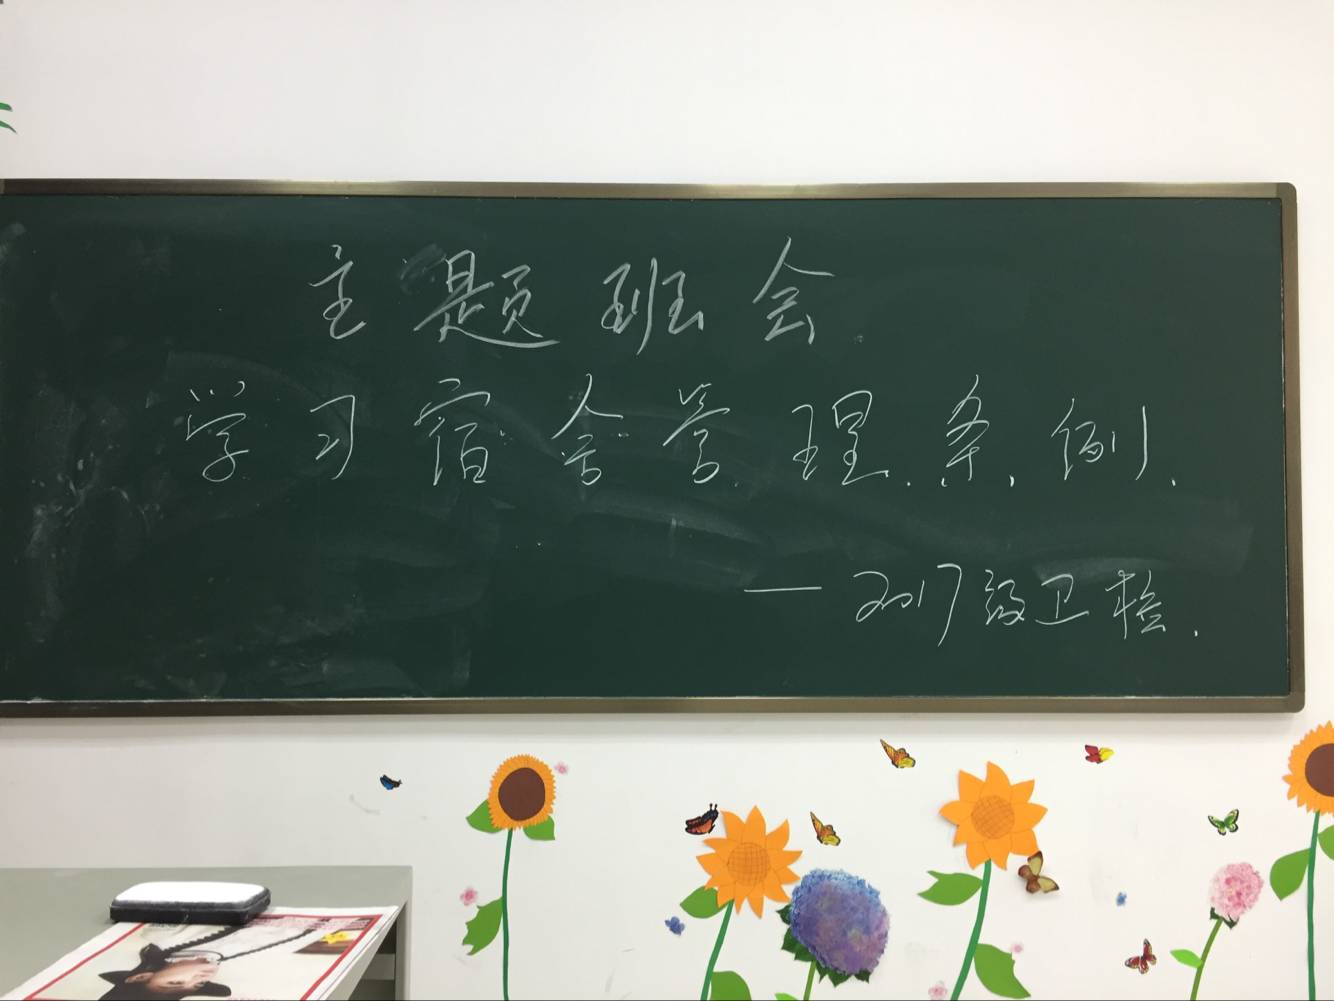 主题班会
学习宿舍管理条例.
—2017级卫检.